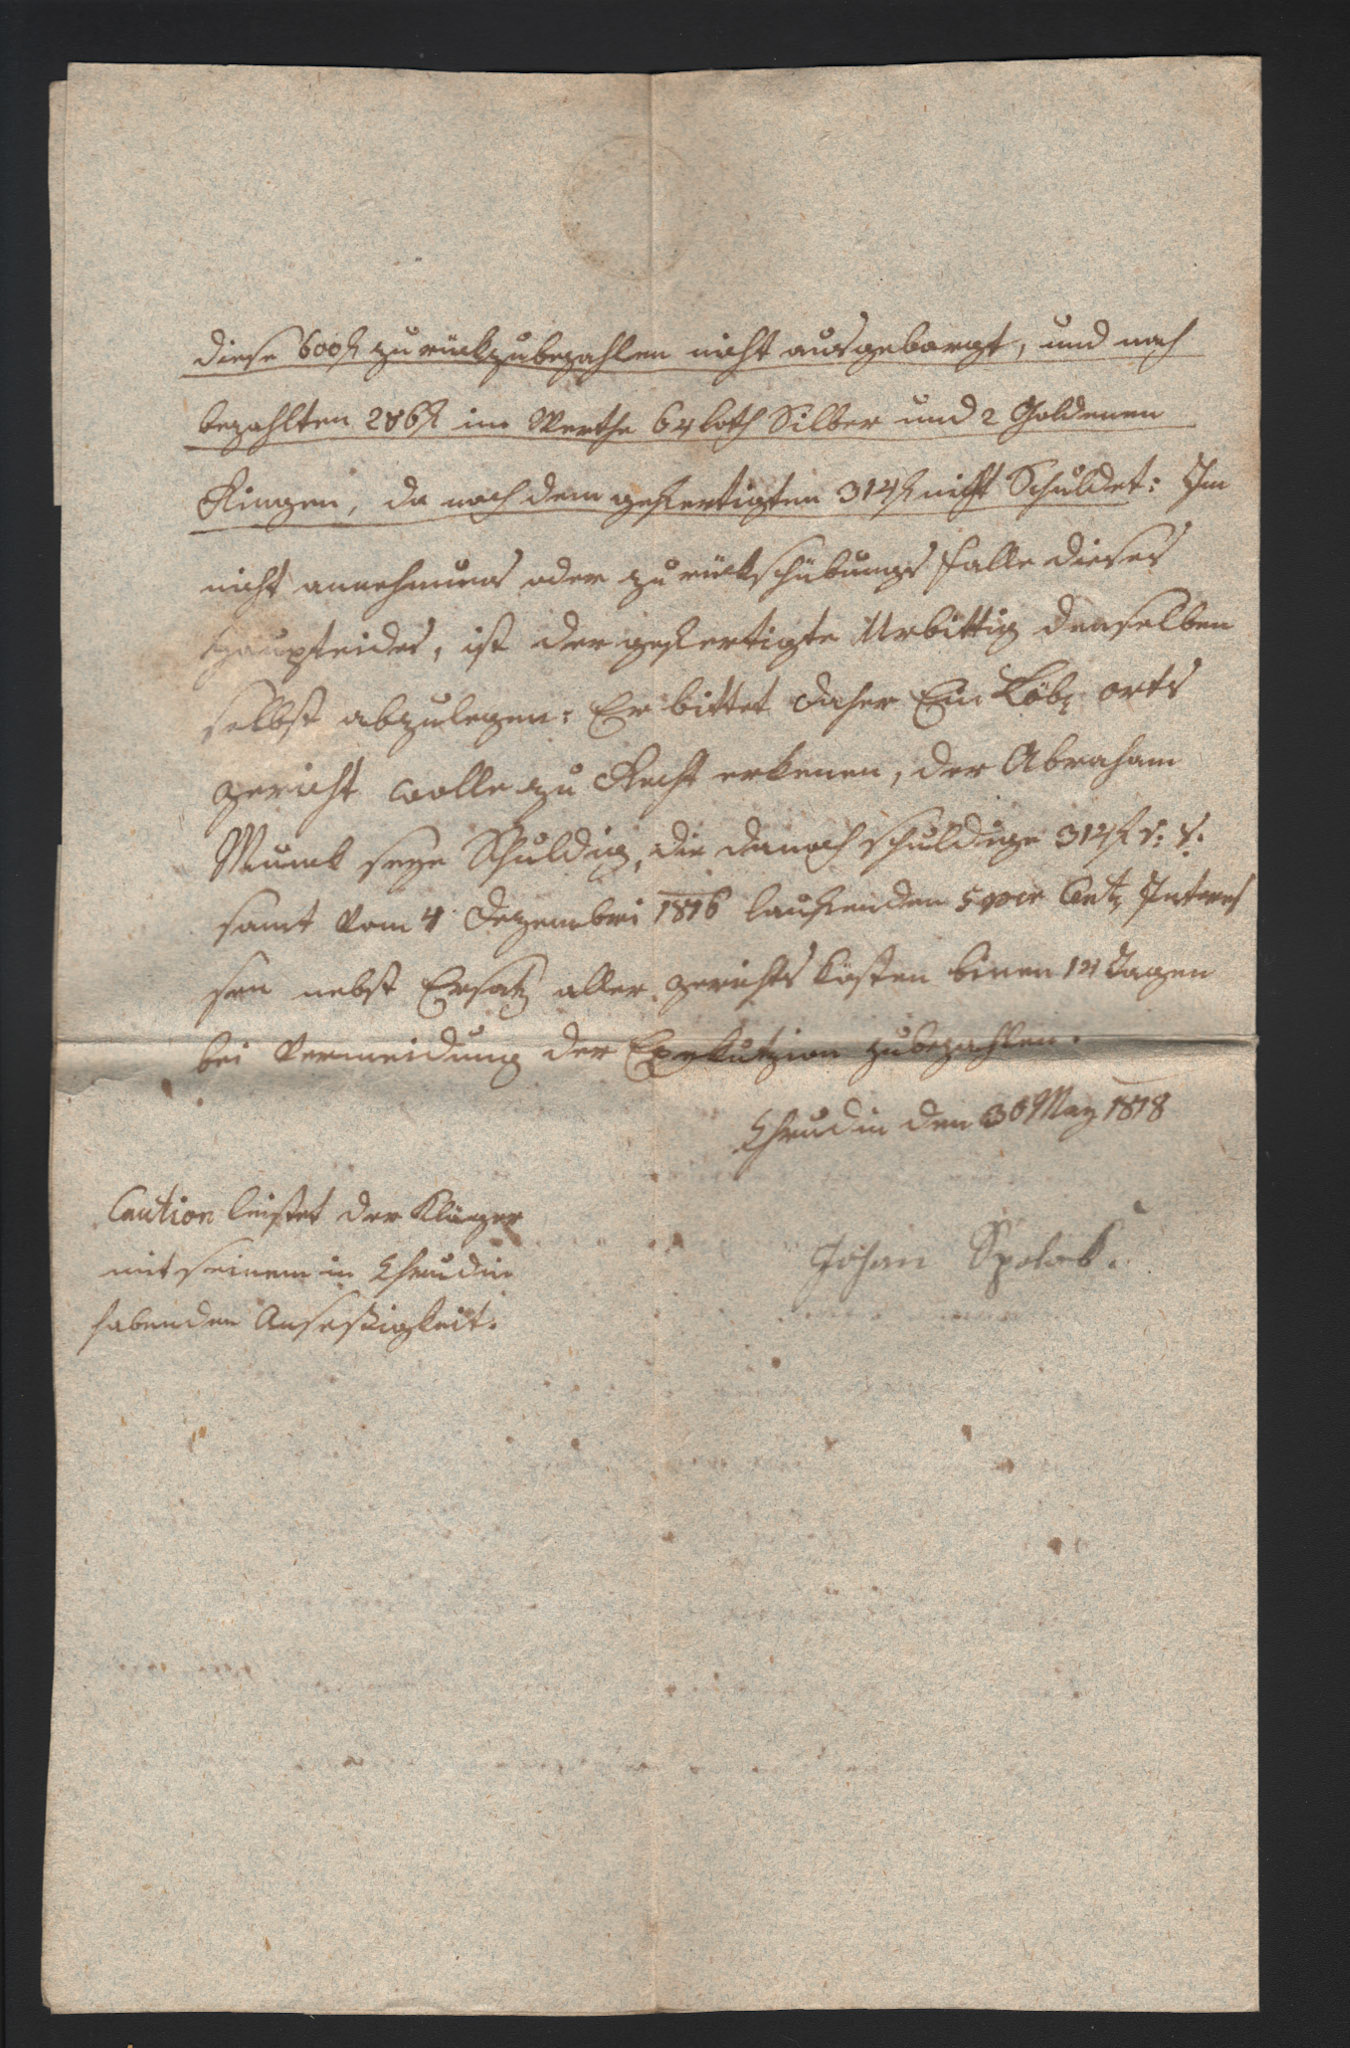 diese 600 f zurückzubezahlen nicht ausgeborgt, und nach
bezahlten 286 f im Werthe 64 loth Silber und 2 Goldenen
Ringen, da noch dem gefertigten 314 f nicht Schuldet: Im
nicht annehmungs oder zurückschübungs falle dieses
Haupteides, ist der gefertigte Urbittig denselben
selbst abzulegen: Er bittet daher Ein Löbl. orts
gericht wolle zu Recht erkenen, der Abraham
Munk seye Schuldig, die danoch schuldige 314 f s:
samt vom 4 Dezembri 1816 laufenden 5 per Cent Interes
sen nebst Ersatz aller gerichts kosten binen 14 Tagen
bei Vermeidung der Exekutzion zubezahlen.
Chrudin den 30 May 1818
Caution leistet der Kläger
mit seinem in Chrudin
habenden Ansäßigkeit.
Johan